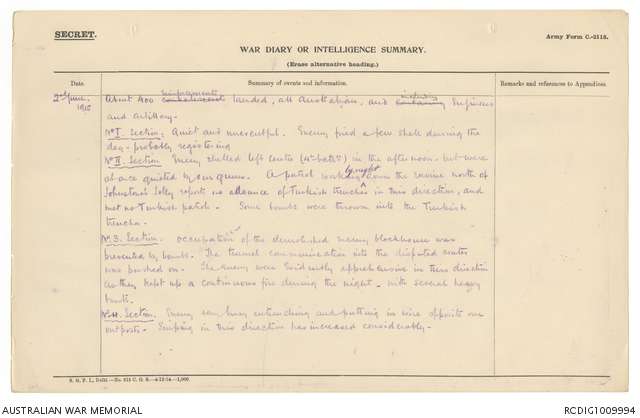 SECRET.
Army Form C.-2118.
WAR DIARY OR INTELLIGENCE SUMMARY.
(Erase alternative heading.)
Date.
Summary of events and information.
Remarks and references to Appendices.
2nd June 1915
About 400 reinforcements landed, all Australian, and including Engineers
and artillery.
No I. Section. Quiet and uneventful. Enemy fired a few shell during the
day - probably registering
No II. Section Enemy shelled left centre (4th battn) in the afternoon - but were
at once quieted by our guns. A patrol working by night down the ravine north of
Johnston's Jolly reports no advance of Turkish trenches in this direction, and
met no Turkish patrols - Some bombs were thrown into the Turkish
trenches.
No 3. Section. Occupation of the demolished enemy blockhouse was
prevented by bombs. The tunnel communication into the disputed crater
was pushed on. The enemy were evidently apprehensive in this direction
as they kept up a continuous fire during the night - with several heavy
bursts.
No 4. Section. Enemy very busy entrenching and putting in wire opposite our
outposts. Sniping in this direction has increased considerably -
S. G. P. I., Delhi.—No. 815 C. G. S.—4-12-14.—1,000.
AUSTRALIAN WAR MEMORIAL
RCDIG1009994